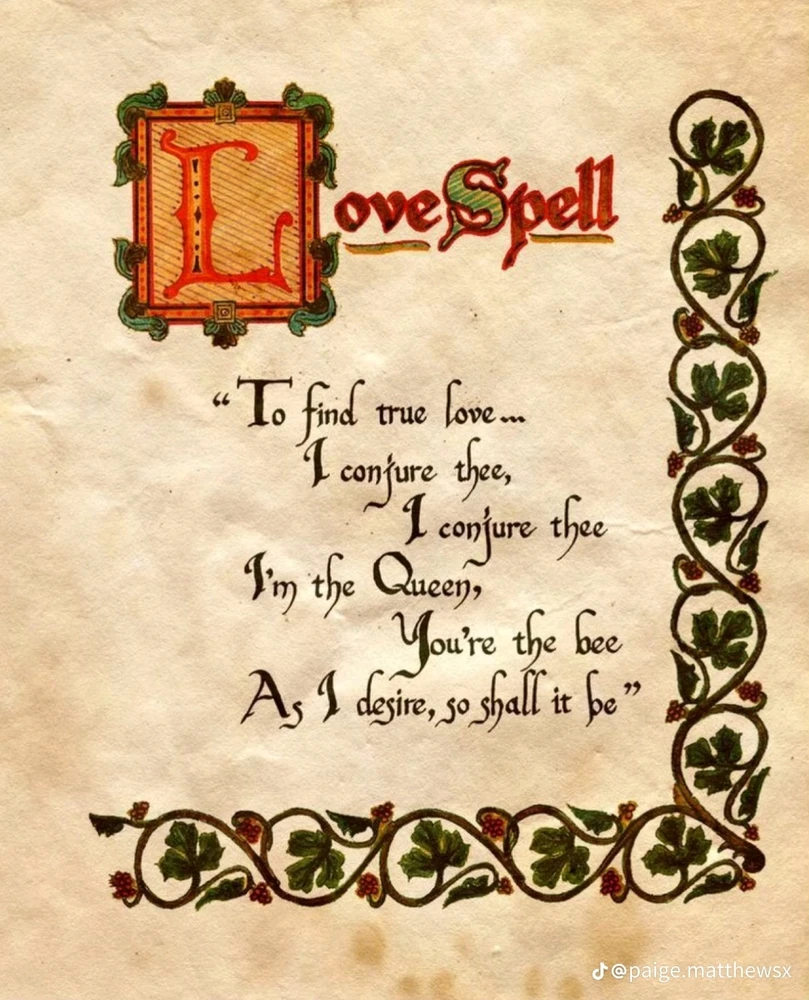 Love Spell
“To find true love...
I conjure thee,
I conjure thee
I'm the Queen,
You're the bee
As I desire, so shall it be”
@paige.matthewsx